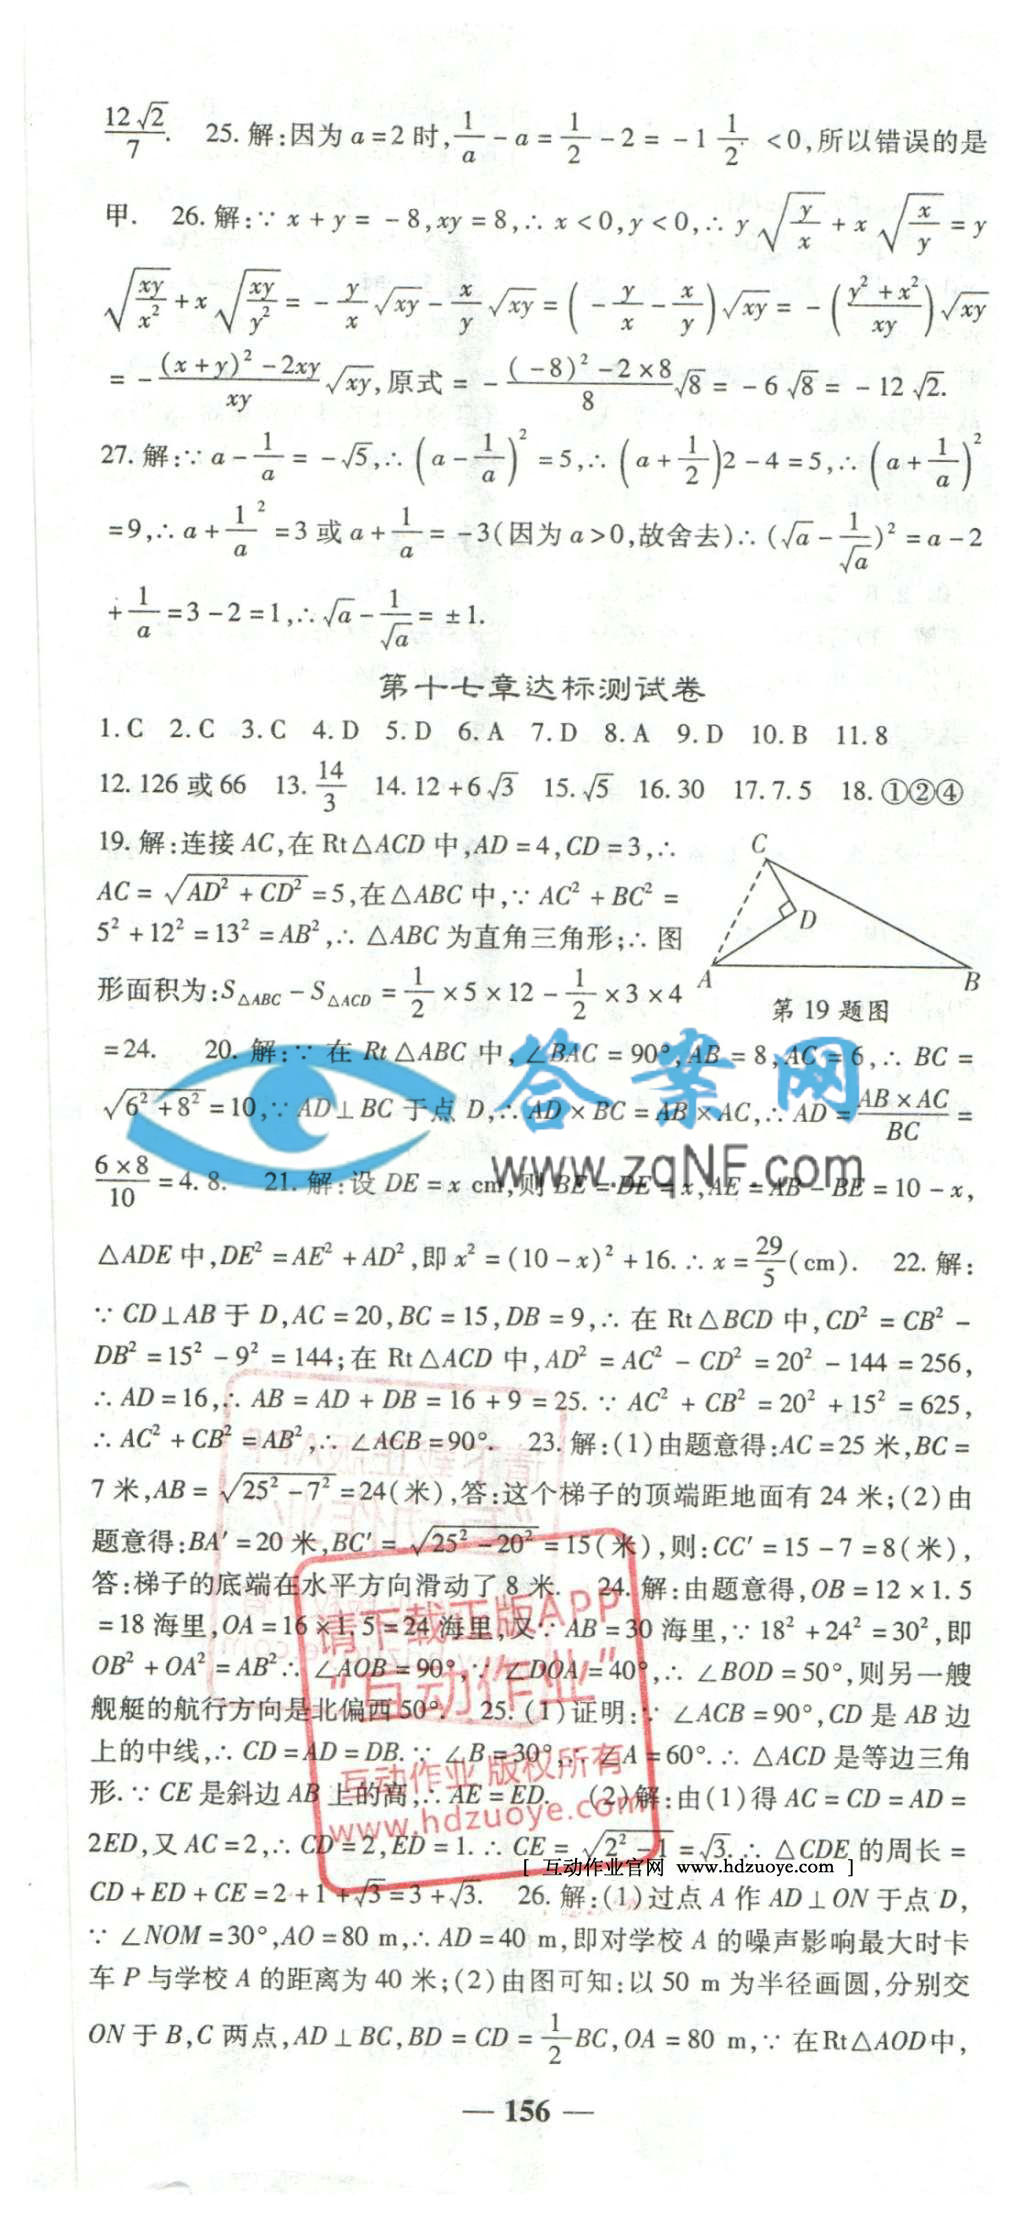 12√2/7. 25.解:因为a=2时,1/a-a=1/2-2=-1 1/2<0,所以错误的是
甲. 26.解:∵x+y=-8,xy=8,∴x<0,y<0,∴y√(y/x)+x√(x/y)=y
√(xy/x²)+x√(xy/y²)=-y/x√xy-x/y√xy=(-y/x-x/y)√xy=-((y²+x²)/xy)√xy
=-((x+y)²-2xy)/xy√xy,原式=-((-8)²-2×8)/8√8=-6√8=-12√2.
27.解:∵a-1/a=-√5,∴(a-1/a)²=5,∴(a+1/2)2-4=5,∴(a+1/a)²
=9,∴a+1/a²=3或a+1/a=-3(因为a>0,故舍去)∴(√a-1/√a)²=a-2
+1/a=3-2=1,∴√a-1/√a=±1.
第十七章达标测试卷
1.C 2.C 3.C 4.D 5.D 6.A 7.D 8.A 9.D 10.B 11.8
12.126或66 13.14/3 14.12+6√3 15.√5 16.30 17.7.5 18.①②④
19.解:连接AC,在Rt△ACD中,AD=4,CD=3,∴
AC=√(AD²+CD²)=5,在△ABC中,∵AC²+BC²=
5²+12²=13²=AB²,∴△ABC为直角三角形;∴图
形面积为:S△ABC-S△ACD=1/2×5×12-1/2×3×4
C
D
A
B
第19题图
=24. 20.解:∵在Rt△ABC中,∠BAC=90°,AB=8,AC=6,∴BC=
√(6²+8²)=10,∵AD⊥BC于点D,∴AD×BC=AB×AC,∴AD=AB×AC/BC=
6×8/10=4.8. 21.解:设DE=x cm,则BE=DE=x,AE=AB-BE=10-x,
△ADE中,DE²=AE²+AD²,即x²=(10-x)²+16.∴x=29/5(cm). 22.解:
∵CD⊥AB于D,AC=20,BC=15,DB=9,∴在Rt△BCD中,CD²=CB²-
DB²=15²-9²=144;在Rt△ACD中,AD²=AC²-CD²=20²-144=256,
∴AD=16,∴AB=AD+DB=16+9=25.∵AC²+CB²=20²+15²=625,
∴AC²+CB²=AB²,∴∠ACB=90°. 23.解:(1)由题意得:AC=25米,BC=
7米,AB=√(25²-7²)=24(米),答:这个梯子的顶端距地面有24米;(2)由
题意得:BA′=20米,BC′=√(25²-20²)=15(米),则:CC′=15-7=8(米),
答:梯子的底端在水平方向滑动了8米. 24.解:由题意得,OB=12×1.5
=18海里,OA=16×1.5=24海里,又∵AB=30海里,∵18²+24²=30²,即
OB²+OA²=AB²∴∠AOB=90°,∵∠DOA=40°,∴∠BOD=50°,则另一艘
舰艇的航行方向是北偏西50°. 25.(1)证明:∵∠ACB=90°,CD是AB边
上的中线,∴CD=AD=DB.∵∠B=30°,∴∠A=60°.∴△ACD是等边三角
形.∵CE是斜边AB上的高,∴AE=ED. (2)解:由(1)得AC=CD=AD=
2ED,又AC=2,∴CD=2,ED=1.∴CE=√(2²-1)=√3.∴△CDE的周长=
CD+ED+CE=2+1+√3=3+√3. 26.解:(1)过点A作AD⊥ON于点D,
∵∠NOM=30°,AO=80 m,∴AD=40 m,即对学校A的噪声影响最大时卡
车P与学校A的距离为40米;(2)由图可知:以50 m为半径画圆,分别交
ON于B,C两点,AD⊥BC,BD=CD=1/2BC,OA=80 m,∵在Rt△AOD中,
— 156 —
答案网
www.zqNF.com
请下载正版APP
“互动作业”
互动作业 版权所有
www.hdzuoye.com
[ 互动作业官网 www.hdzuoye.com ]